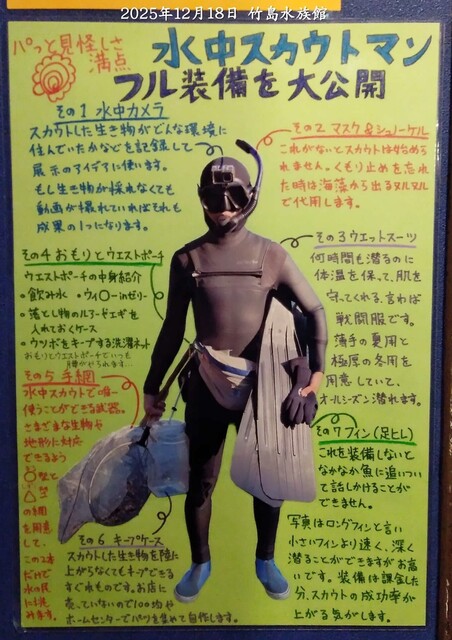 2025年12月18日 竹島水族館
パっと見怪しさ
満点
水中スカウトマン
フル装備を大公開
その1 水中カメラ
スカウトした生き物がどんな環境に
住んでいたかなどを記録して
展示のアイデアに使います。
もし生き物が採れなくても
動画が撮れていればそれも
成果の1つになります。
その2 マスク&シュノーケル
これがないとスカウトは始められ
れません。くもり止めを忘れ
た時は海藻から出るヌルヌル
で代用します。
その3 ウエットスーツ
何時間も潜るのに
体温を保って、肌を
守ってくれる、言わば
戦闘服です。
薄手の夏用と
極厚の冬用を
用意していて、
オールシーズン潜れます。
その4 おもりとウエストポーチ
ウエストポーチの中身紹介
・飲み水 ・ウィ〇ーinゼリー
・落とし物のルアーやエギを
入れておくケース
・ウツボをキープする洗濯ネット
おもりとウエストポーチでいつも
腰がやられます…
その5 手網
水中スカウトで唯一
使うことができる武器。
さまざまな生物や
地形に対応
できるよう
〇型と
△型
の網を用意
して、
この2本
だけで
水の民
に挑
みます。
その6 キープケース
スカウトした生き物を陸に
上がらなくてもキープできる
すぐれものです。お店に
売っていないので100均や
ホームセンターでパーツを集めて自作します。
その7 フィン(足ヒレ)
これを装備しないと
なかなか魚に追いつい
て話しかけることが
できません。
写真はロングフィンと言い
小さいフィンより速く、深く
潜ることができますがお高
いです。装備は課金した
分、スカウトの成功率が
上がる気がします。